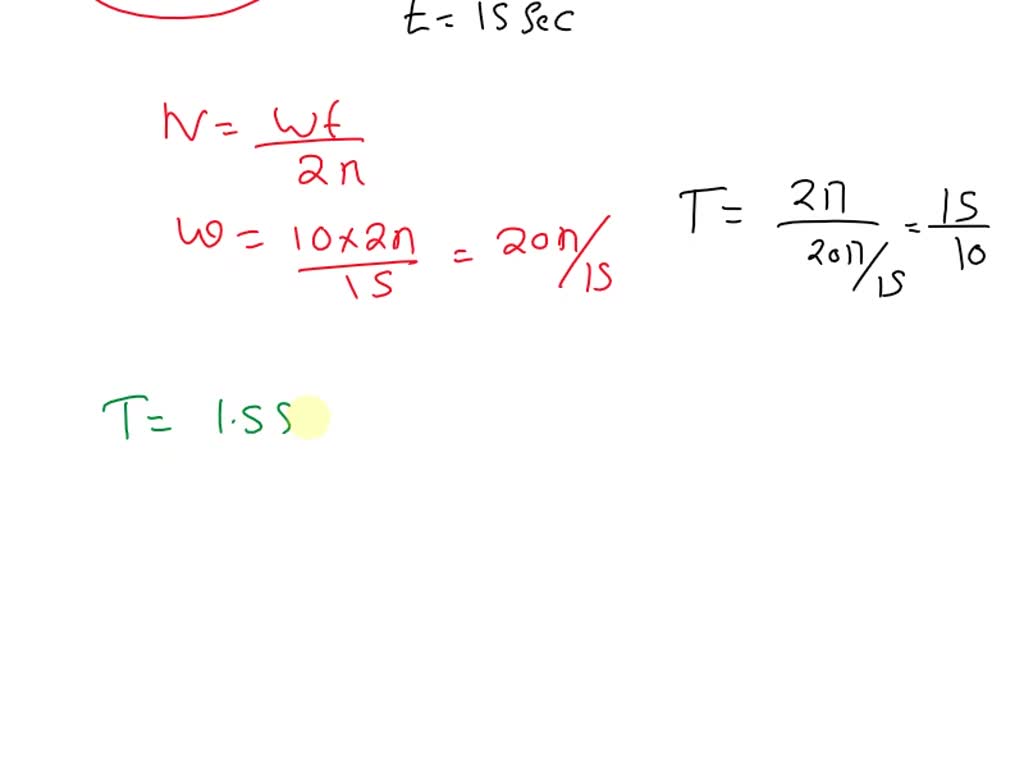 t = 15 sec
N = wt/2π
ω = 10×2π/15 = 20π/15
T = 2π/20π/15 = 15/10
T = 1.5 s